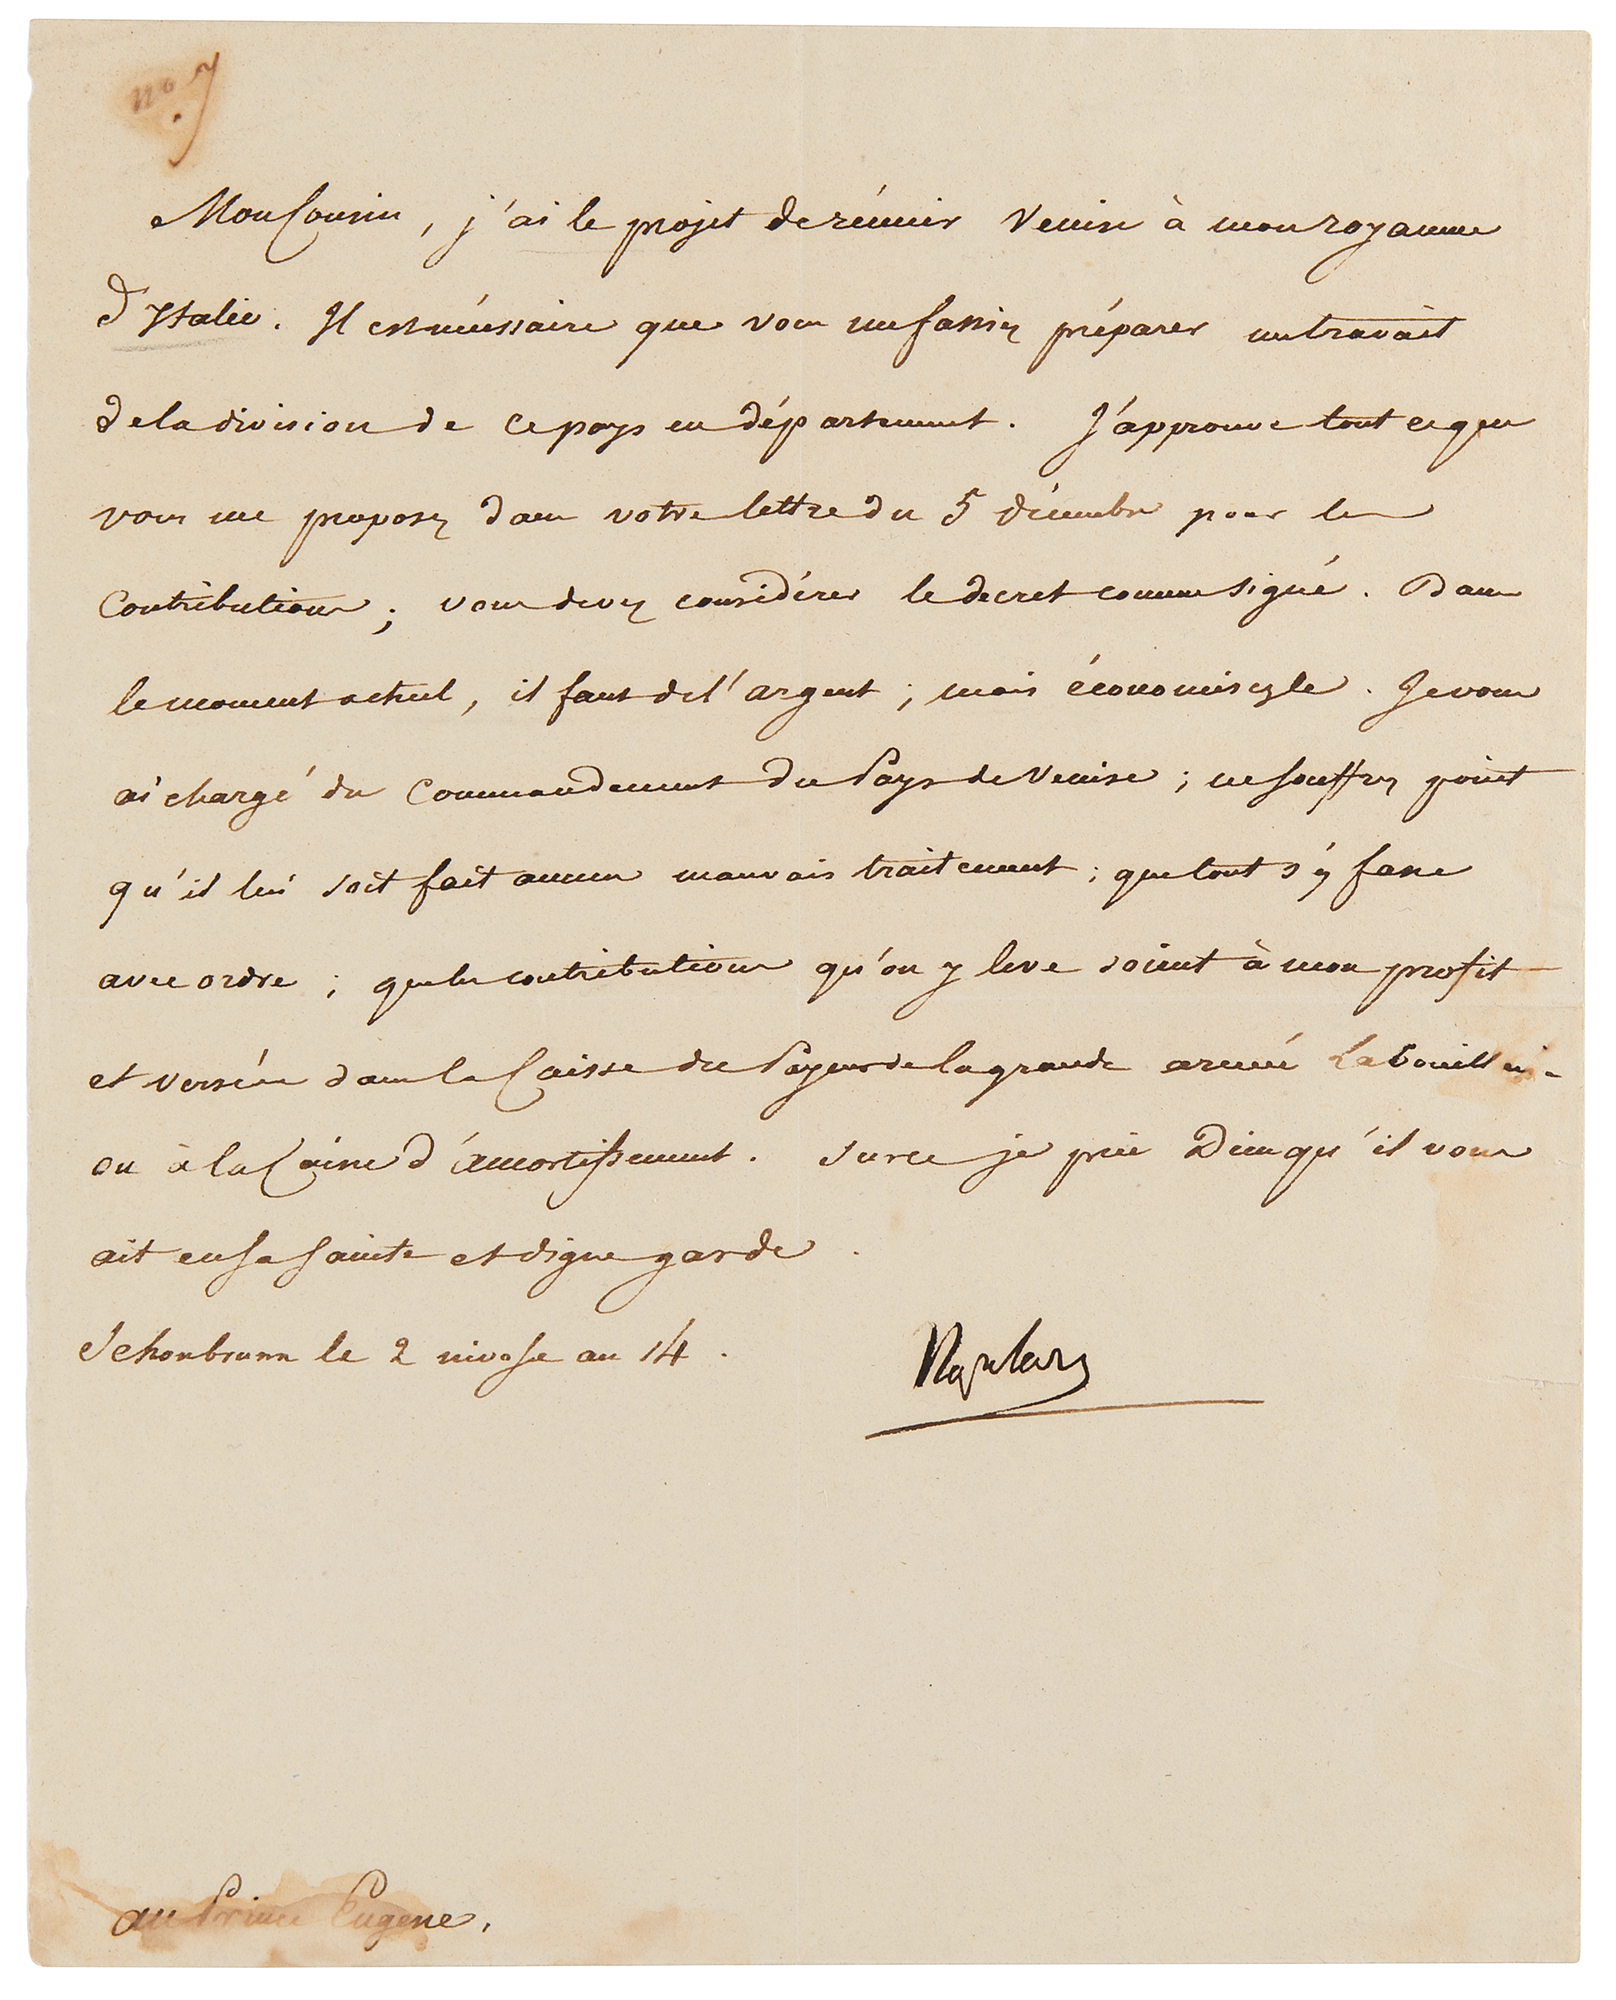 no. 7
Mon Cousin, j'ai le projet de réunir Venise à mon royaume
d'Italie. Il est nécessaire que vous me fassiez préparer un travail
de la division de ce pays en département. J'approuve tout ce que
vous me proposez dans votre lettre du 5 décembre pour les
Contributions; vous devez considérer le decret comme signé. Dans
le moment actuel, il faut de l'argent; mais économisez le. Je vous
ai chargé du Commandement du Pays de Venise; ne souffrez point
qu'il lui soit fait aucun mauvais traitement; que tout s'y fasse
avec ordre; que les contributions qu'on y leve soient à mon profit
et versées dans la Caisse du Payeur de la grande armée Labouillerie
ou à la Caisse d'amortissement. Sur ce je prie Dieu qu'il vous
ait en sa sainte et digne garde.
Schonbrunn le 2 nivose an 14.
Napoleon
au Prince Eugene.